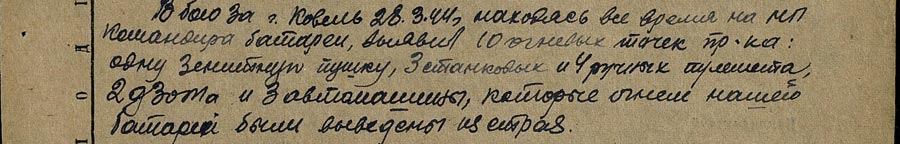 В бою за г. Ковель 28.3.44г, находясь все время на НП
командира батареи, выявил 10 огневых точек пр-ка:
одну зенитную пушку, 3 станковых и 4 ручных пулемета,
2 дзота и 3 автомашины, которые огнем нашей
батареи были выведены из строя.